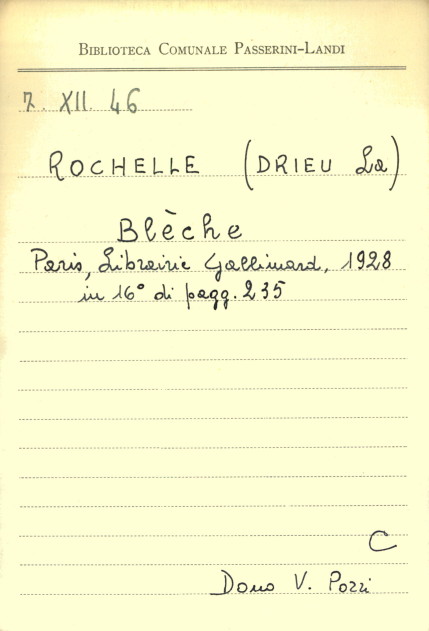 Biblioteca Comunale Passerini-Landi
7. XII. 46
ROCHELLE (DRIEU La)
Blèche
Paris, Librairie Gallimard, 1928
in 16° di pagg. 235
C
Dono V. Pozzi